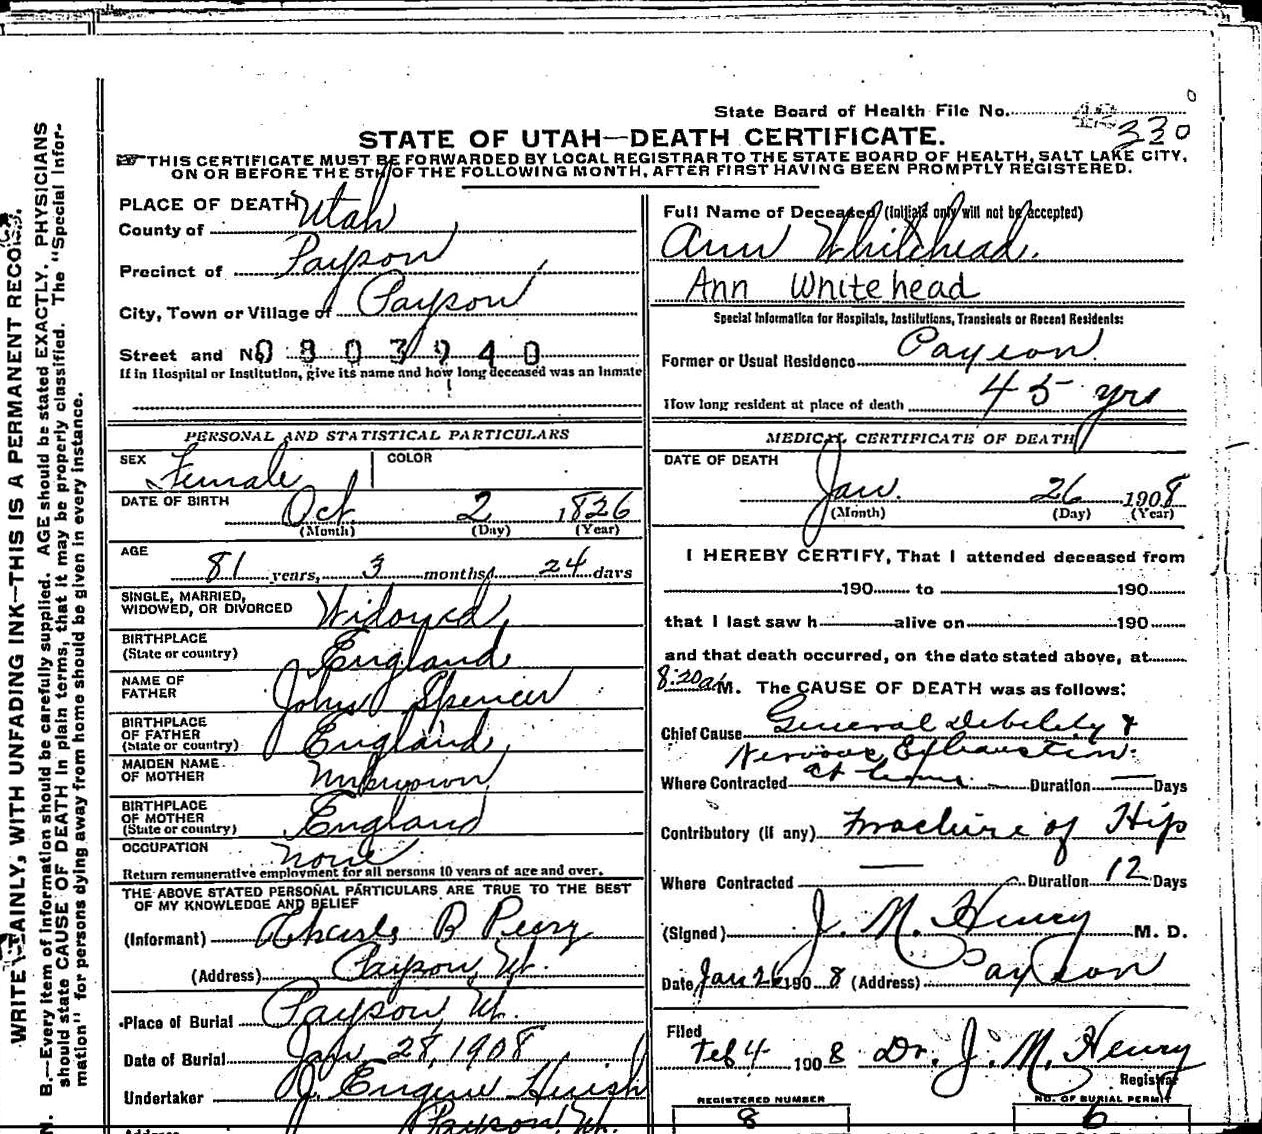 State Board of Health File No. 42
330
STATE OF UTAH—DEATH CERTIFICATE.
THIS CERTIFICATE MUST BE FORWARDED BY LOCAL REGISTRAR TO THE STATE BOARD OF HEALTH, SALT LAKE CITY,
ON OR BEFORE THE 5TH OF THE FOLLOWING MONTH, AFTER FIRST HAVING BEEN PROMPTLY REGISTERED.
PLACE OF DEATH
County of Utah
Precinct of Payson
City, Town or Village of Payson
Street and No. 0803940
If in Hospital or Institution, give its name and how long deceased was an inmate
PERSONAL AND STATISTICAL PARTICULARS
SEX Female COLOR
DATE OF BIRTH
Oct 2 1826
(Month) (Day) (Year)
AGE
81 years, 3 months, 24 days
SINGLE, MARRIED,
WIDOWED, OR DIVORCED Widowed
BIRTHPLACE
(State or country) England
NAME OF
FATHER John Spencer
BIRTHPLACE
OF FATHER
(State or country) England
MAIDEN NAME
OF MOTHER Unknown
BIRTHPLACE
OF MOTHER
(State or country) England
OCCUPATION none
Return remunerative employment for all persons 10 years of age and over.
THE ABOVE STATED PERSONAL PARTICULARS ARE TRUE TO THE BEST
OF MY KNOWLEDGE AND BELIEF
(Informant) Charles B Perry
(Address) Payson, Ut.
Place of Burial Payson, Ut.
Date of Burial Jan 28, 1908
Undertaker J. Eugene Huish
Address Payson, Ut.
Full Name of Deceased (Initials only will not be accepted)
Ann Whitehead.
Ann Whitehead
Special Information for Hospitals, Institutions, Transients or Recent Residents:
Former or Usual Residence Payson
How long resident at place of death 45 yrs
MEDICAL CERTIFICATE OF DEATH
DATE OF DEATH
Jan. 26 1908
(Month) (Day) (Year)
I HEREBY CERTIFY, That I attended deceased from
190 to 190
that I last saw h alive on 190
and that death occurred, on the date stated above, at
8:20 a M. The CAUSE OF DEATH was as follows:
Chief Cause General Debility &
Nervous Exhaustion.
Where Contracted at home Duration — Days
Contributory (if any) Fracture of Hip
Where Contracted Duration 12 Days
(Signed) J. M. Henry M. D.
Date Jan 26 1908 (Address) Payson
Filed
Feb 4 1908 Dr. J. M. Henry
Registrar
REGISTERED NUMBER
8
NO. OF BURIAL PERMIT
6
WRITE PLAINLY, WITH UNFADING INK—THIS IS A PERMANENT RECORD.
N. B.—Every item of information should be carefully supplied. AGE should be stated EXACTLY. PHYSICIANS
should state CAUSE OF DEATH in plain terms, that it may be properly classified. The "Special Infor-
mation" for persons dying away from home should be given in every instance.